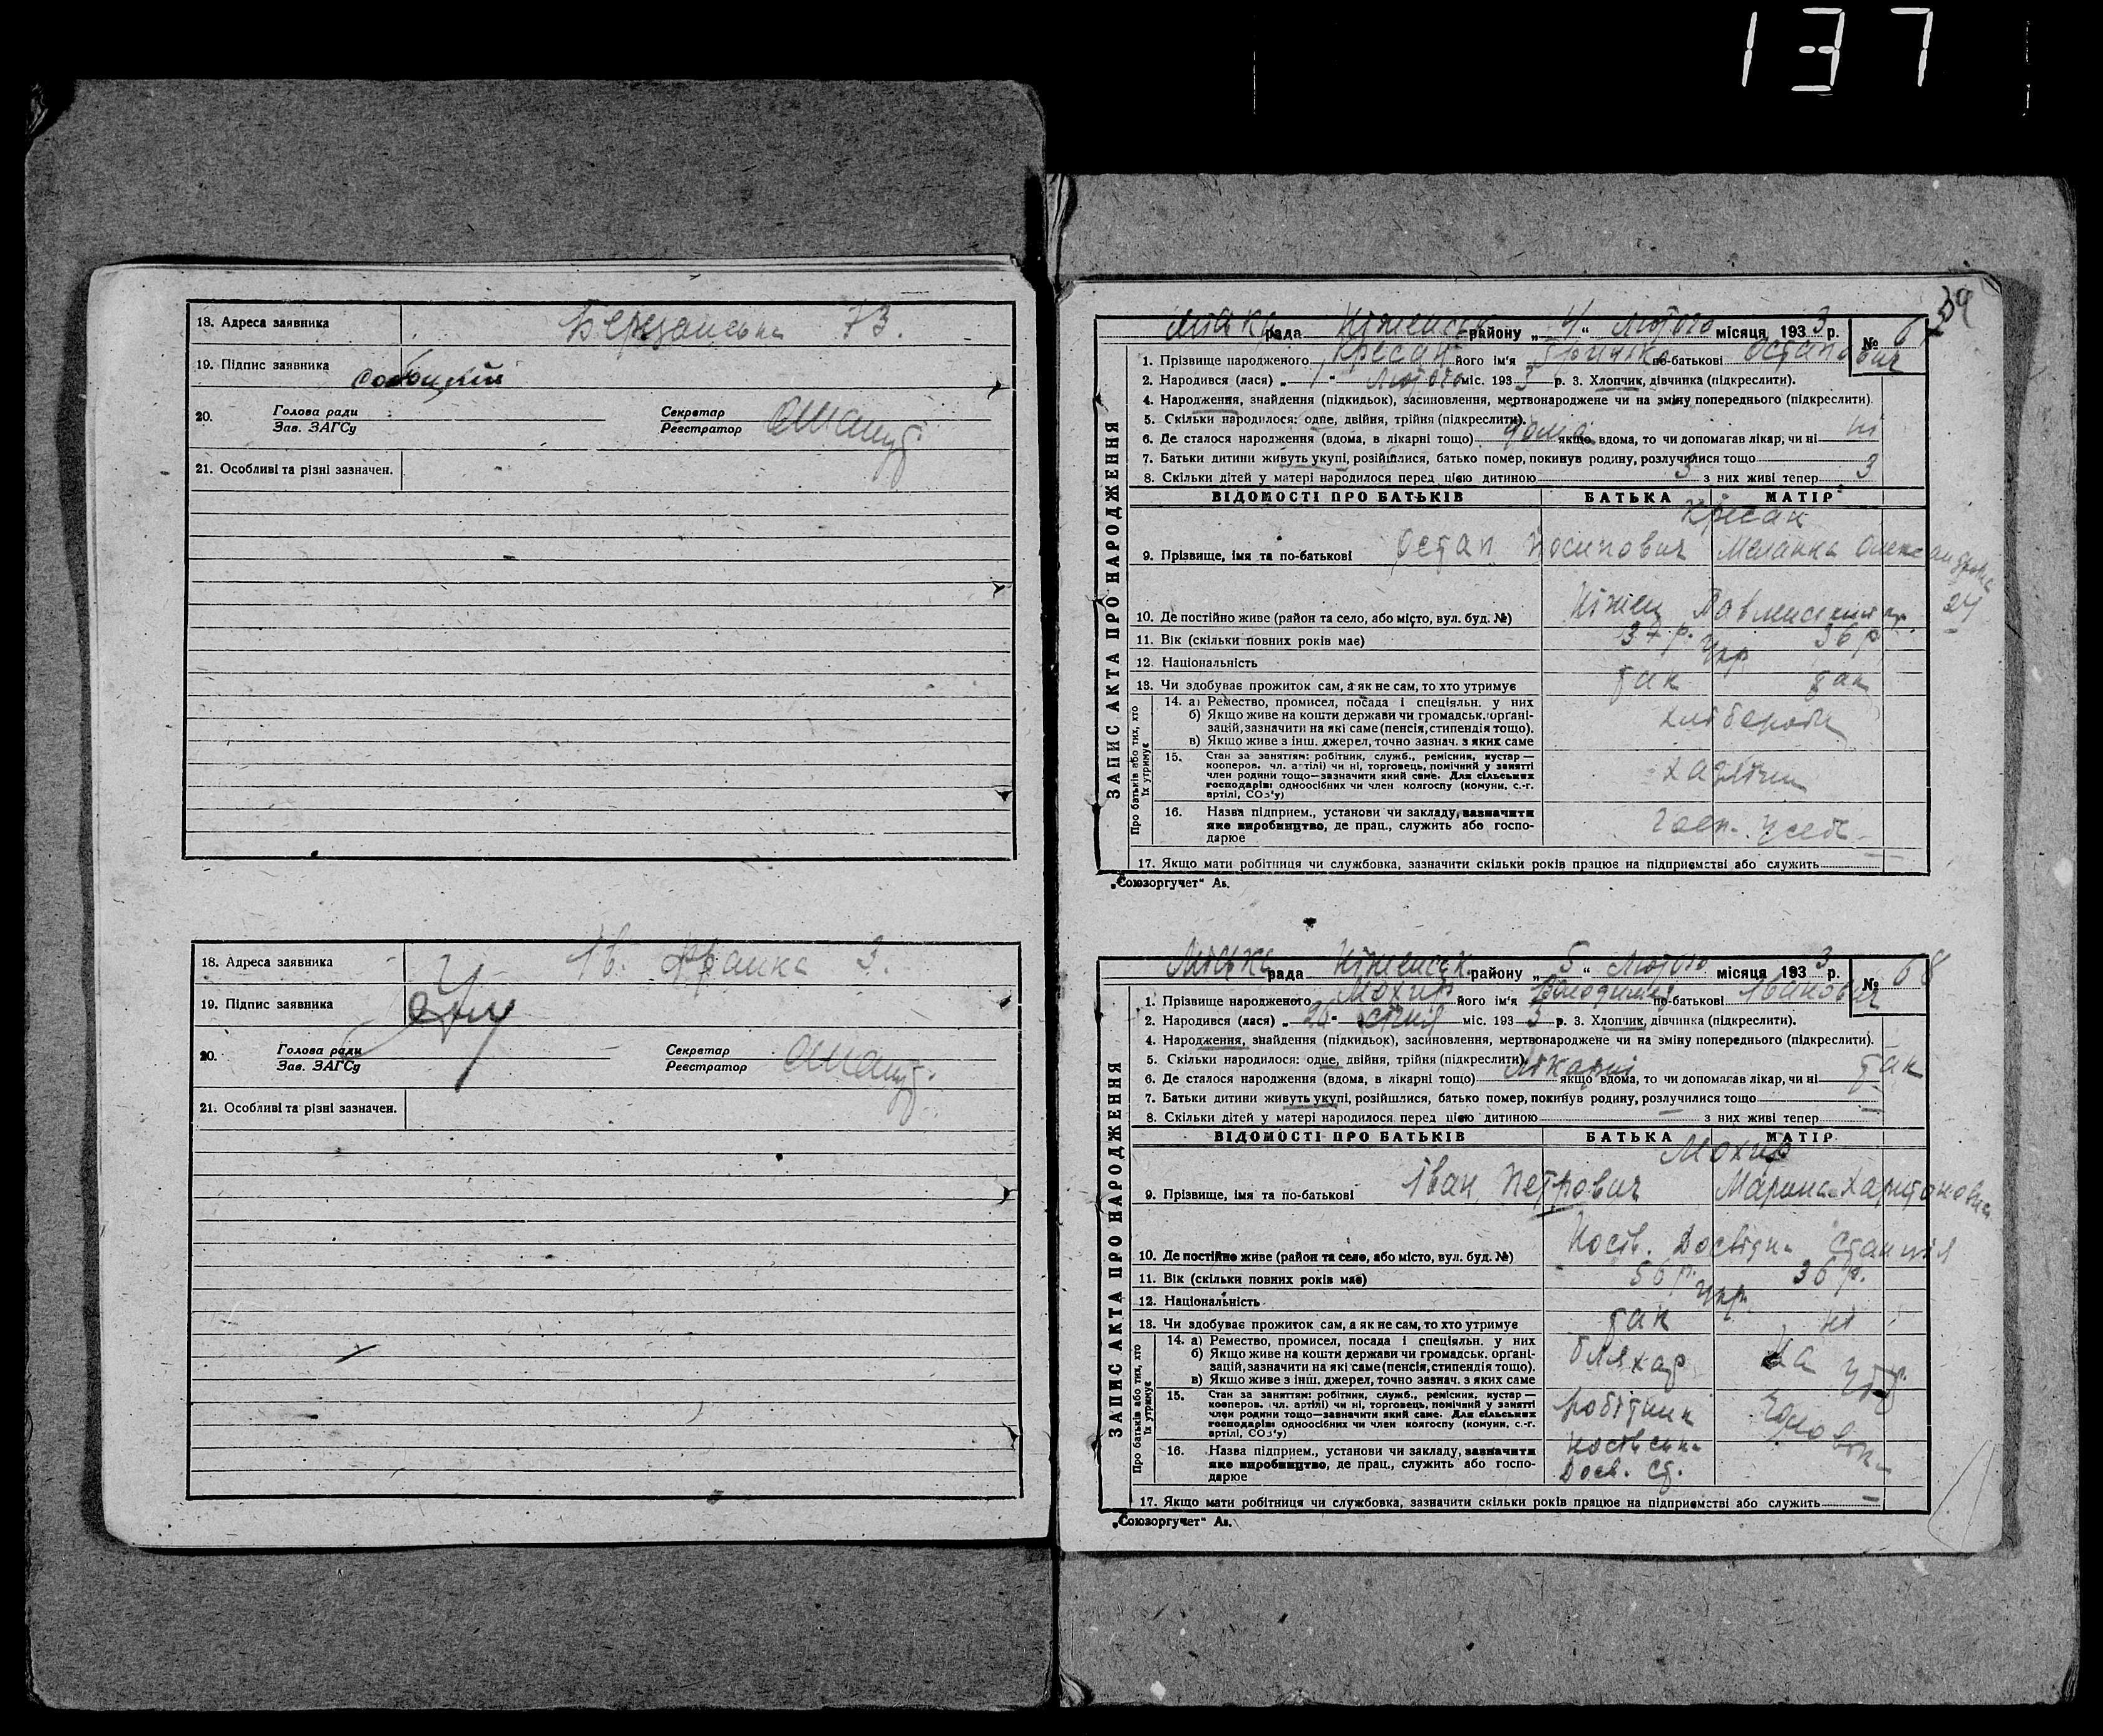 137
18. Адреса заявника Березанська 73.
19. Підпис заявника
20. Голова ради Секретар
Зав. ЗАГСу Реєстратор
21. Особливі та різні зазначен.
18. Адреса заявника Ів. Франка 3.
19. Підпис заявника
20. Голова ради Секретар
Зав. ЗАГСу Реєстратор
21. Особливі та різні зазначен.
39
Міська рада Ніженськ району „4“ Лютого місяця 1933 р. № 67
ЗАПИС АКТА ПРО НАРОДЖЕННЯ
1. Прізвище народженого Кресан його ім'я Грицько по-батькові Остапович
2. Народився (лася) „1“ Лютого міс. 1933 р. 3. Хлопчик, дівчинка (підкреслити).
4. Народження, знайдення (підкидьок), засиновлення, мертвонароджене чи на зміну попереднього (підкреслити)
5. Скільки народилося: одне, двійня, трійня (підкреслити).
6. Де сталося народження (вдома, в лікарні тощо) дома якщо вдома, то чи допомагав лікар, чи ні ні
7. Батьки дитини живуть укупі, розійшлися, батько помер, покинув родину, розлучилися тощо
8. Скільки дітей у матері народилося перед цією дитиною 3 з них живі тепер 3
ВІДОМОСТІ ПРО БАТЬКІВ БАТЬКА МАТІР
Кресан
9. Прізвище, імя та по-батькові Остап Йосипович Меланка Олександровна
10. Де постійно живе (район та село, або місто, вул. буд. №) Ніжен 24
11. Вік (скільки повних років має) 37 р. 36 р.
12. Національність Укр
13. Чи здобуває прожиток сам, а як не сам, то хто утримує так так
Про батьків або тих, хто їх утримує
14. а) Ремество, промисел, посада і спеціяльн. у них
б) Якщо живе на кошти держави чи громадськ. орґані-
зацій, зазначити на які саме (пенсія, стипендія тощо).
в) Якщо живе з інш. джерел, точно зазнач. з яких саме
хлібороби
15. Стан за заняттям: робітник, служб., ремісник, кустар —
кооперов. чл. артілі) чи ні, торговець, помічний у занятті
член родини тощо—зазначити який саме. Для сільських
господарів: одноосібних чи член колгоспу (комуни, с.-г.
артілі, СОЗ'у)
хазяїни
16. Назва підприєм., установи чи закладу, зазначити
яке виробництво, де прац., служить або госпо-
дарює
госп. у себе
17. Якщо мати робітниця чи службовка, зазначити скільки років працює на підприємстві або служить
„Союзоргучет“ Ав.
Міська рада Ніженськ району „5“ Лютого місяця 1933 р. № 68
ЗАПИС АКТА ПРО НАРОДЖЕННЯ
1. Прізвище народженого Мохир його ім'я Володимир по-батькові Іванович
2. Народився (лася) „26“ Січня міс. 1933 р. 3. Хлопчик, дівчинка (підкреслити).
4. Народження, знайдення (підкидьок), засиновлення, мертвонароджене чи на зміну попереднього (підкреслити).
5. Скільки народилося: одне, двійня, трійня (підкреслити).
6. Де сталося народження (вдома, в лікарні тощо) Лікарні якщо вдома, то чи допомагав лікар, чи ні так
7. Батьки дитини живуть укупі, розійшлися, батько помер, покинув родину, розлучилися тощо
8. Скільки дітей у матері народилося перед цією дитиною з них живі тепер
ВІДОМОСТІ ПРО БАТЬКІВ БАТЬКА МАТІР
Мохир
9. Прізвище, імя та по-батькові Іван Петрович Марина Харитоновна
10. Де постійно живе (район та село, або місто, вул. буд. №) Носів. Досвідна Станція
11. Вік (скільки повних років має) 56 р. 36 р.
12. Національність Укр.
13. Чи здобуває прожиток сам, а як не сам, то хто утримує так ні
Про батьків або тих, хто їх утримує
14. а) Ремество, промисел, посада і спеціяльн. у них
б) Якщо живе на кошти держави чи громадськ. орґані-
зацій, зазначити на які саме (пенсія, стипендія тощо).
в) Якщо живе з інш. джерел, точно зазнач. з яких саме
бляхар на утр.
15. Стан за заняттям: робітник, служб., ремісник, кустар —
кооперов. чл. артілі) чи ні, торговець, помічний у занятті
член родини тощо—зазначити який саме. Для сільських
господарів: одноосібних чи член колгоспу (комуни, с.-г.
артілі, СОЗ'у)
робітник чоловік
16. Назва підприєм., установи чи закладу, зазначити
яке виробництво, де прац., служить або госпо-
дарює
Носівська
Досв. ст.
17. Якщо мати робітниця чи службовка, зазначити скільки років працює на підприємстві або служить
„Союзоргучет“ Ав.